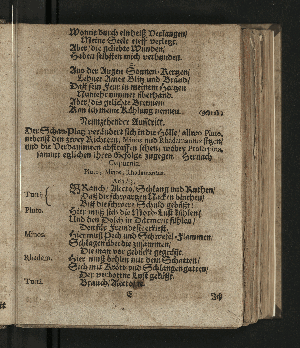 Wormit durch ein heiß Verlangen/
Meine Seele tieff verletzt.
Aber die geliebte Wunden/
Haben selbsten mich verbunden.
2.
Aus der Augen Sonnen-Kertzen/
Lehnet Amor Blitz und Brand/
Daß sein Feur in meinem Hertzen
Nunmehr nimmet überhand.
Aber/ die geliebte Brennen
Kan ich meine Kühlung nennen.
(gehet ab)
Neunzehender Aufftritt.
Der Schau-Platz verändert sich in die Hölle/ allwo Pluto,
nebenst den zween Richtern, Minos und Rhadamantus sitzen/
und die Verdammten abstraffen sehen; wobey Proserpina,
samint etlichen ihres Gefolgs zugegen. Hernach
Cupido.
Pluto, Minos, Rhadamantus.
Aria.
Tutti.
Brauch/ Alecto, Schlang und Ruthen/
Daß die schwartzen Nacken bluten/
Biß die schwere Schuld gebüßt!
Pluto.
Hier muß sich die Mord-Lust kühlen/
Und den Dolch im Hertzen fühlen/
Minos.
Hier muß Pech und Schwefel-Flammen/
Schlagen über die zusammen/
Die man vor
Rhadam.
Hier muß brüllen mit dem Schatten/
Sich mit Kröt- und Schlangen gatten/
Der verbottne Lust gebüßt.
Tutti.
Brauch/ Alecto,
C